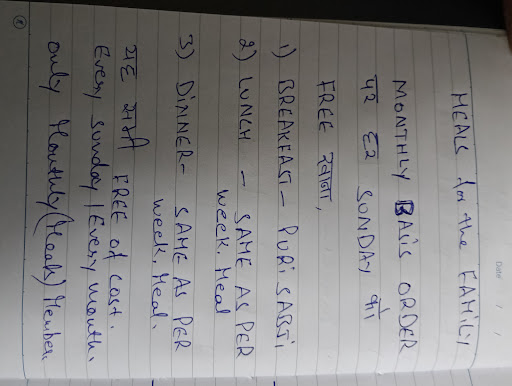 Date / /
MEALS for the FAMILY
MONTHLY BASiS ORDER
पर हर SUNDAY का
FREE खाना,
1) BREAKFAST - PURi SABJi
2) LUNCH - SAME AS PER
week. Meal
3) DiNNER - SAME AS PER
week. Meal.
यह सभी FREE of cost.
Every Sunday / Every month.
only Monthly (Meals) Member.